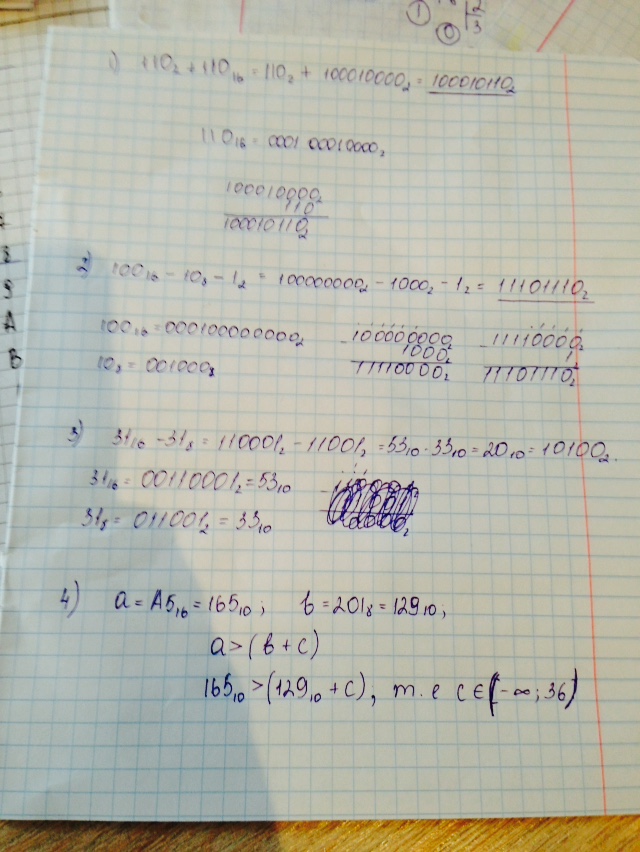 1) 110₂ + 110₁₆ = 110₂ + 100010000₂ = 100010110₂
110₁₆ = 000100010000₂
100010000₂
110
100010110₂
2) 100₁₆ - 10₈ - 1₂ = 100000000₂ - 1000₂ - 1₂ = 11101110₂
100₁₆ = 000100000000₂
10₈ = 001000₈
- 100000000₂
1000₂
11110000₂
- 11110000₂
1
11101110₂
3) 31₁₆ - 31₈ = 110001₂ - 11001₂ = 53₁₀ - 33₁₀ = 20₁₀ = 10100₂.
31₁₆ = 00110001₂ = 53₁₀
31₈ = 011001₂ = 33₁₀
4) a = A5₁₆ = 165₁₀; b = 201₈ = 129₁₀;
a > (b + c)
165₁₀ > (129₁₀ + c), т.е c ∈ (-∞; 36)